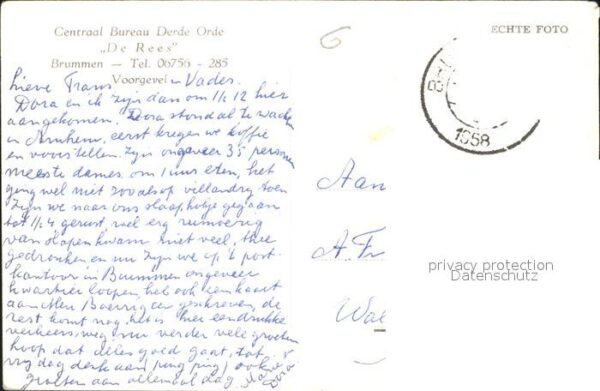 Centraal Bureau Derde Orde
„De Rees"
Brummen — Tel. 06756 - 285
Voorgevel
ECHTE FOTO
6
1958
Lieve Frans en Vader.
Dora en ik zijn dan om 1/2 12 hier
aangekomen. Dora stond al te wachten
in Arnhem, eerst kregen we koffie
en voorstellen. Zijn ongeveer 35 personen
meeste dames. om 1 uur eten, het
ging wel niet zoo als op toen
zijn we naar ons slaaphokje gegaan
tot 1/2 4 gerust, wel erg rumoerig
van slapen kwam niet veel, thee
gedronken en nu zijn we op 't post-
kantoor in Brummen ongeveer
kwartier loopen, heb ook een kaart
aan Mevr geschreven, de
rest komt nog, het is hier een drukke
verkeersweg, nu verder vele groeten
hoop dat alles goed gaat, tot
vrijdag derk aan (ping ping) ook
groeten aan allemaal dag
Dora
Aan
A. Fr
Wa
privacy protection
Datenschutz